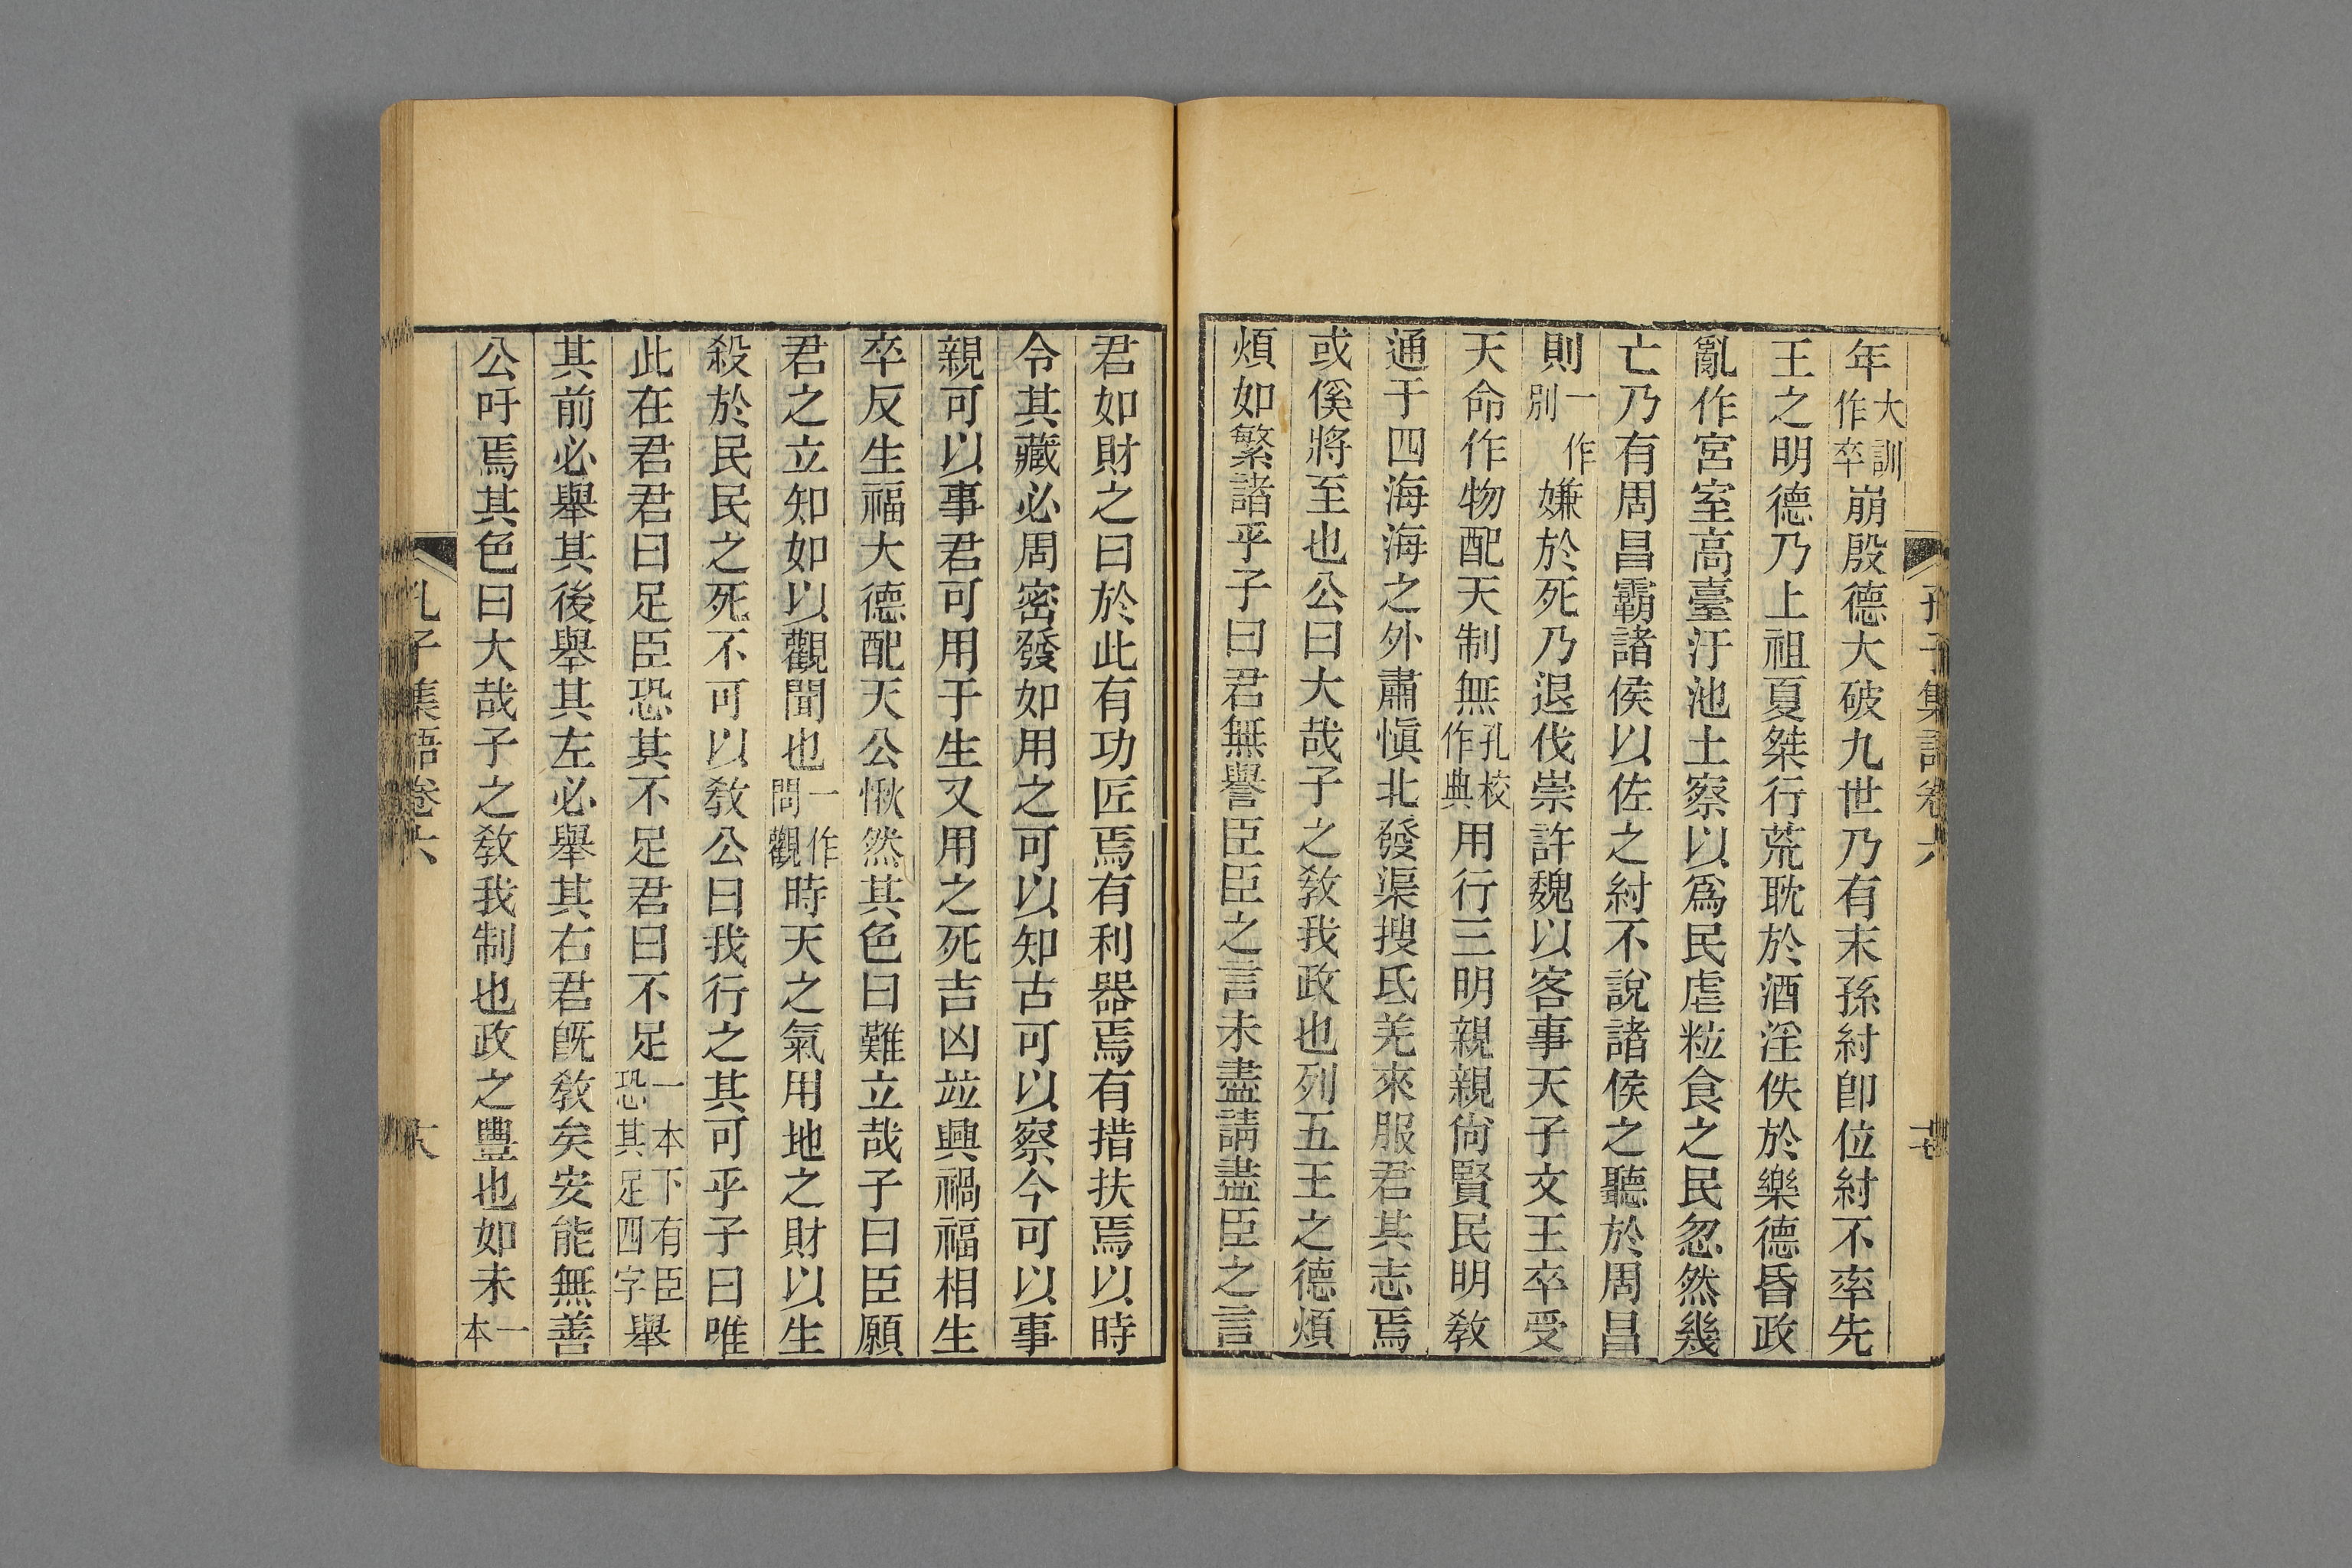 年大訓作卒崩殷德大破九世乃有末孫紂卽位紂不率先
王之明德乃上祖夏桀行荒耽於酒淫佚於樂德昏政
亂作宮室高臺汙池土察以爲民虐粒食之民忽然幾
亡乃有周昌霸諸侯以佐之紂不說諸侯之聽於周昌
則一作別嫌於死乃退伐崇許魏以客事天子文王卒受
天命作物配天制無孔校作典用行三明親親尙賢民明敎
通于四海海之外肅愼北發渠搜氐羌來服君其志焉
或傒將至也公曰大哉子之敎我政也列五王之德煩
煩如繁諸乎子曰君無譽臣臣之言未盡請盡臣之言
君如財之曰於此有功匠焉有利器焉有措扶焉以時
令其藏必周密發如用之可以知古可以察今可以事
親可以事君可用于生又用之死吉凶竝興禍福相生
卒反生福大德配天公愀然其色曰難立哉子曰臣願
君之立知如以觀聞也一作問觀時天之氣用地之財以生
殺於民民之死不可以敎公曰我行之其可乎子曰唯
此在君君曰足臣恐其不足君曰不足一本下有臣恐其足四字舉
其前必舉其後舉其左必舉其右君旣敎矣安能無善
公吁焉其色曰大哉子之敎我制也政之豐也如未一本
孔子集語卷六
六